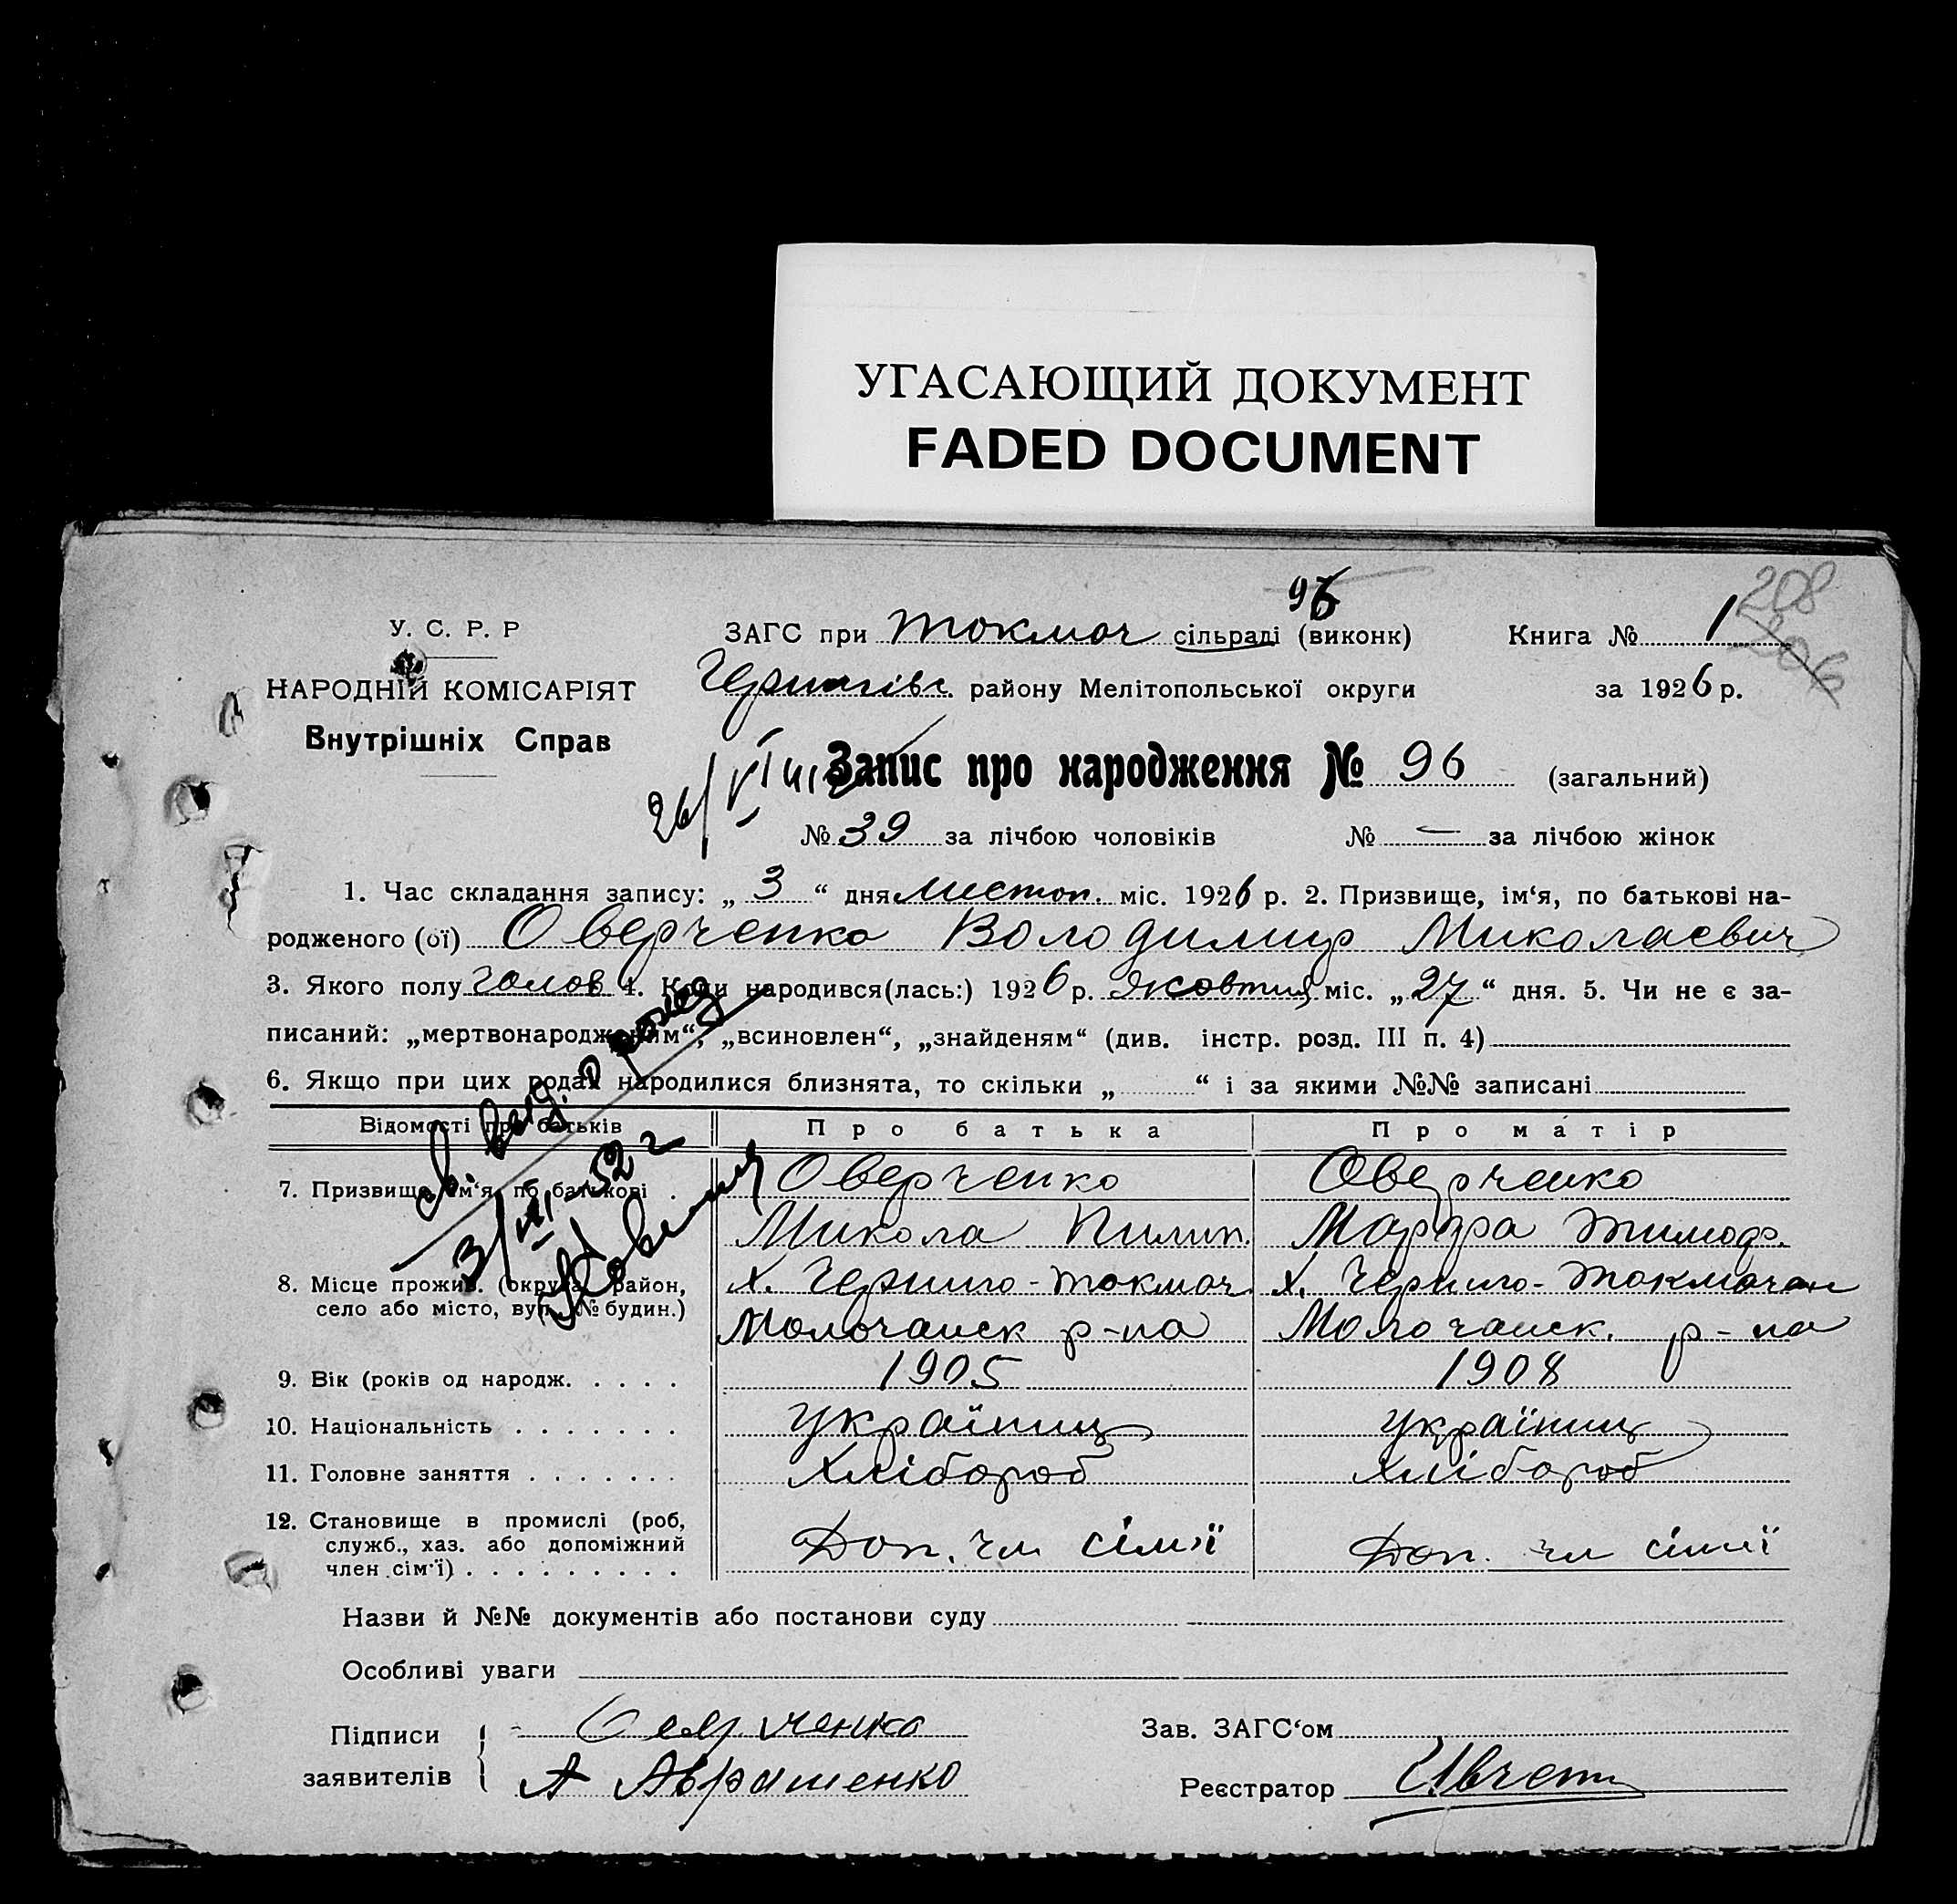 УГАСАЮЩИЙ ДОКУМЕНТ
FADED DOCUMENT
96
208
206
У. С. Р. Р
НАРОДНІЙ КОМІСАРІЯТ
Внутрішніх Справ
ЗАГС при Токмач сільраді (виконк) Книга № 1
Чернигівс. району Мелітопольської округи за 1926 р.
26/VI
Запис про народження № 96 (загальний)
№ 39 за лічбою чоловіків № — за лічбою жінок
1. Час складання запису: „ 3 “ дня листоп. міс. 1926 р. 2. Призвище, ім‘я, по батькові на-
родженого (ої) Оверченко Володимир Миколаевич
3. Якого полу чолов 4. Коли народився(лась:) 1926 р. Жовтня міс. „ 27 “ дня. 5. Чи не є за-
писаний: „мертвонародженим“, „всиновлен“, „знайденям“ (див. інстр. розд. III п. 4)
6. Якщо при цих родах народилися близнята, то скільки „ “ і за якими №№ записані
св. выд. о рожд
3/VI-52 г
Відомості про батьків Про батька Про матір
7. Призвище, ім‘я, по батькові . Оверченко Оверченко
Микола Пилип. Марфа Тимоф.
8. Місце прожив. (округа, район, х. Черниго-Токмач х. Черниго-Токмачан
село або місто, вул. № будин.) Молочанск р-на Молочанск. р-на
9. Вік (років од народж. . . . . 1905 1908
10. Національність . . . . . . . українць українць
11. Головне заняття . . . . . . . Хлібороб хлібороб
12. Становище в промислі (роб,
служб., хаз. або допоміжний Доп. чл сім'ї Доп. чл сімї
член сім‘ї) . . . . . . . . .
Назви й №№ документів або постанови суду
Особливі уваги
Підписи Оверченко Зав. ЗАГС‘ом
заявителів А Авраменко Реєстратор